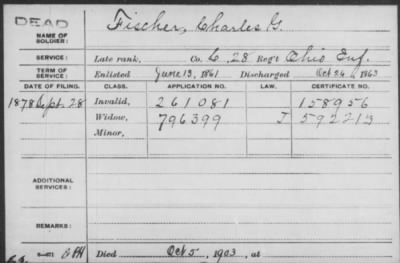 DEAD
NAME OF SOLDIER: Fischer, Charles G.
SERVICE: Late rank, Co. C, 28 Reg't Ohio Inf.
TERM OF SERVICE: Enlisted June 13, 1861 Discharged Oct 24, 1863
DATE OF FILING. CLASS. APPLICATION NO. LAW. CERTIFICATE NO.
1878 Sept. 28 Invalid, 261081 158956
Widow, 796399 592213
Minor,
ADDITIONAL SERVICES:
REMARKS:
Died Oct 5, 1903, at